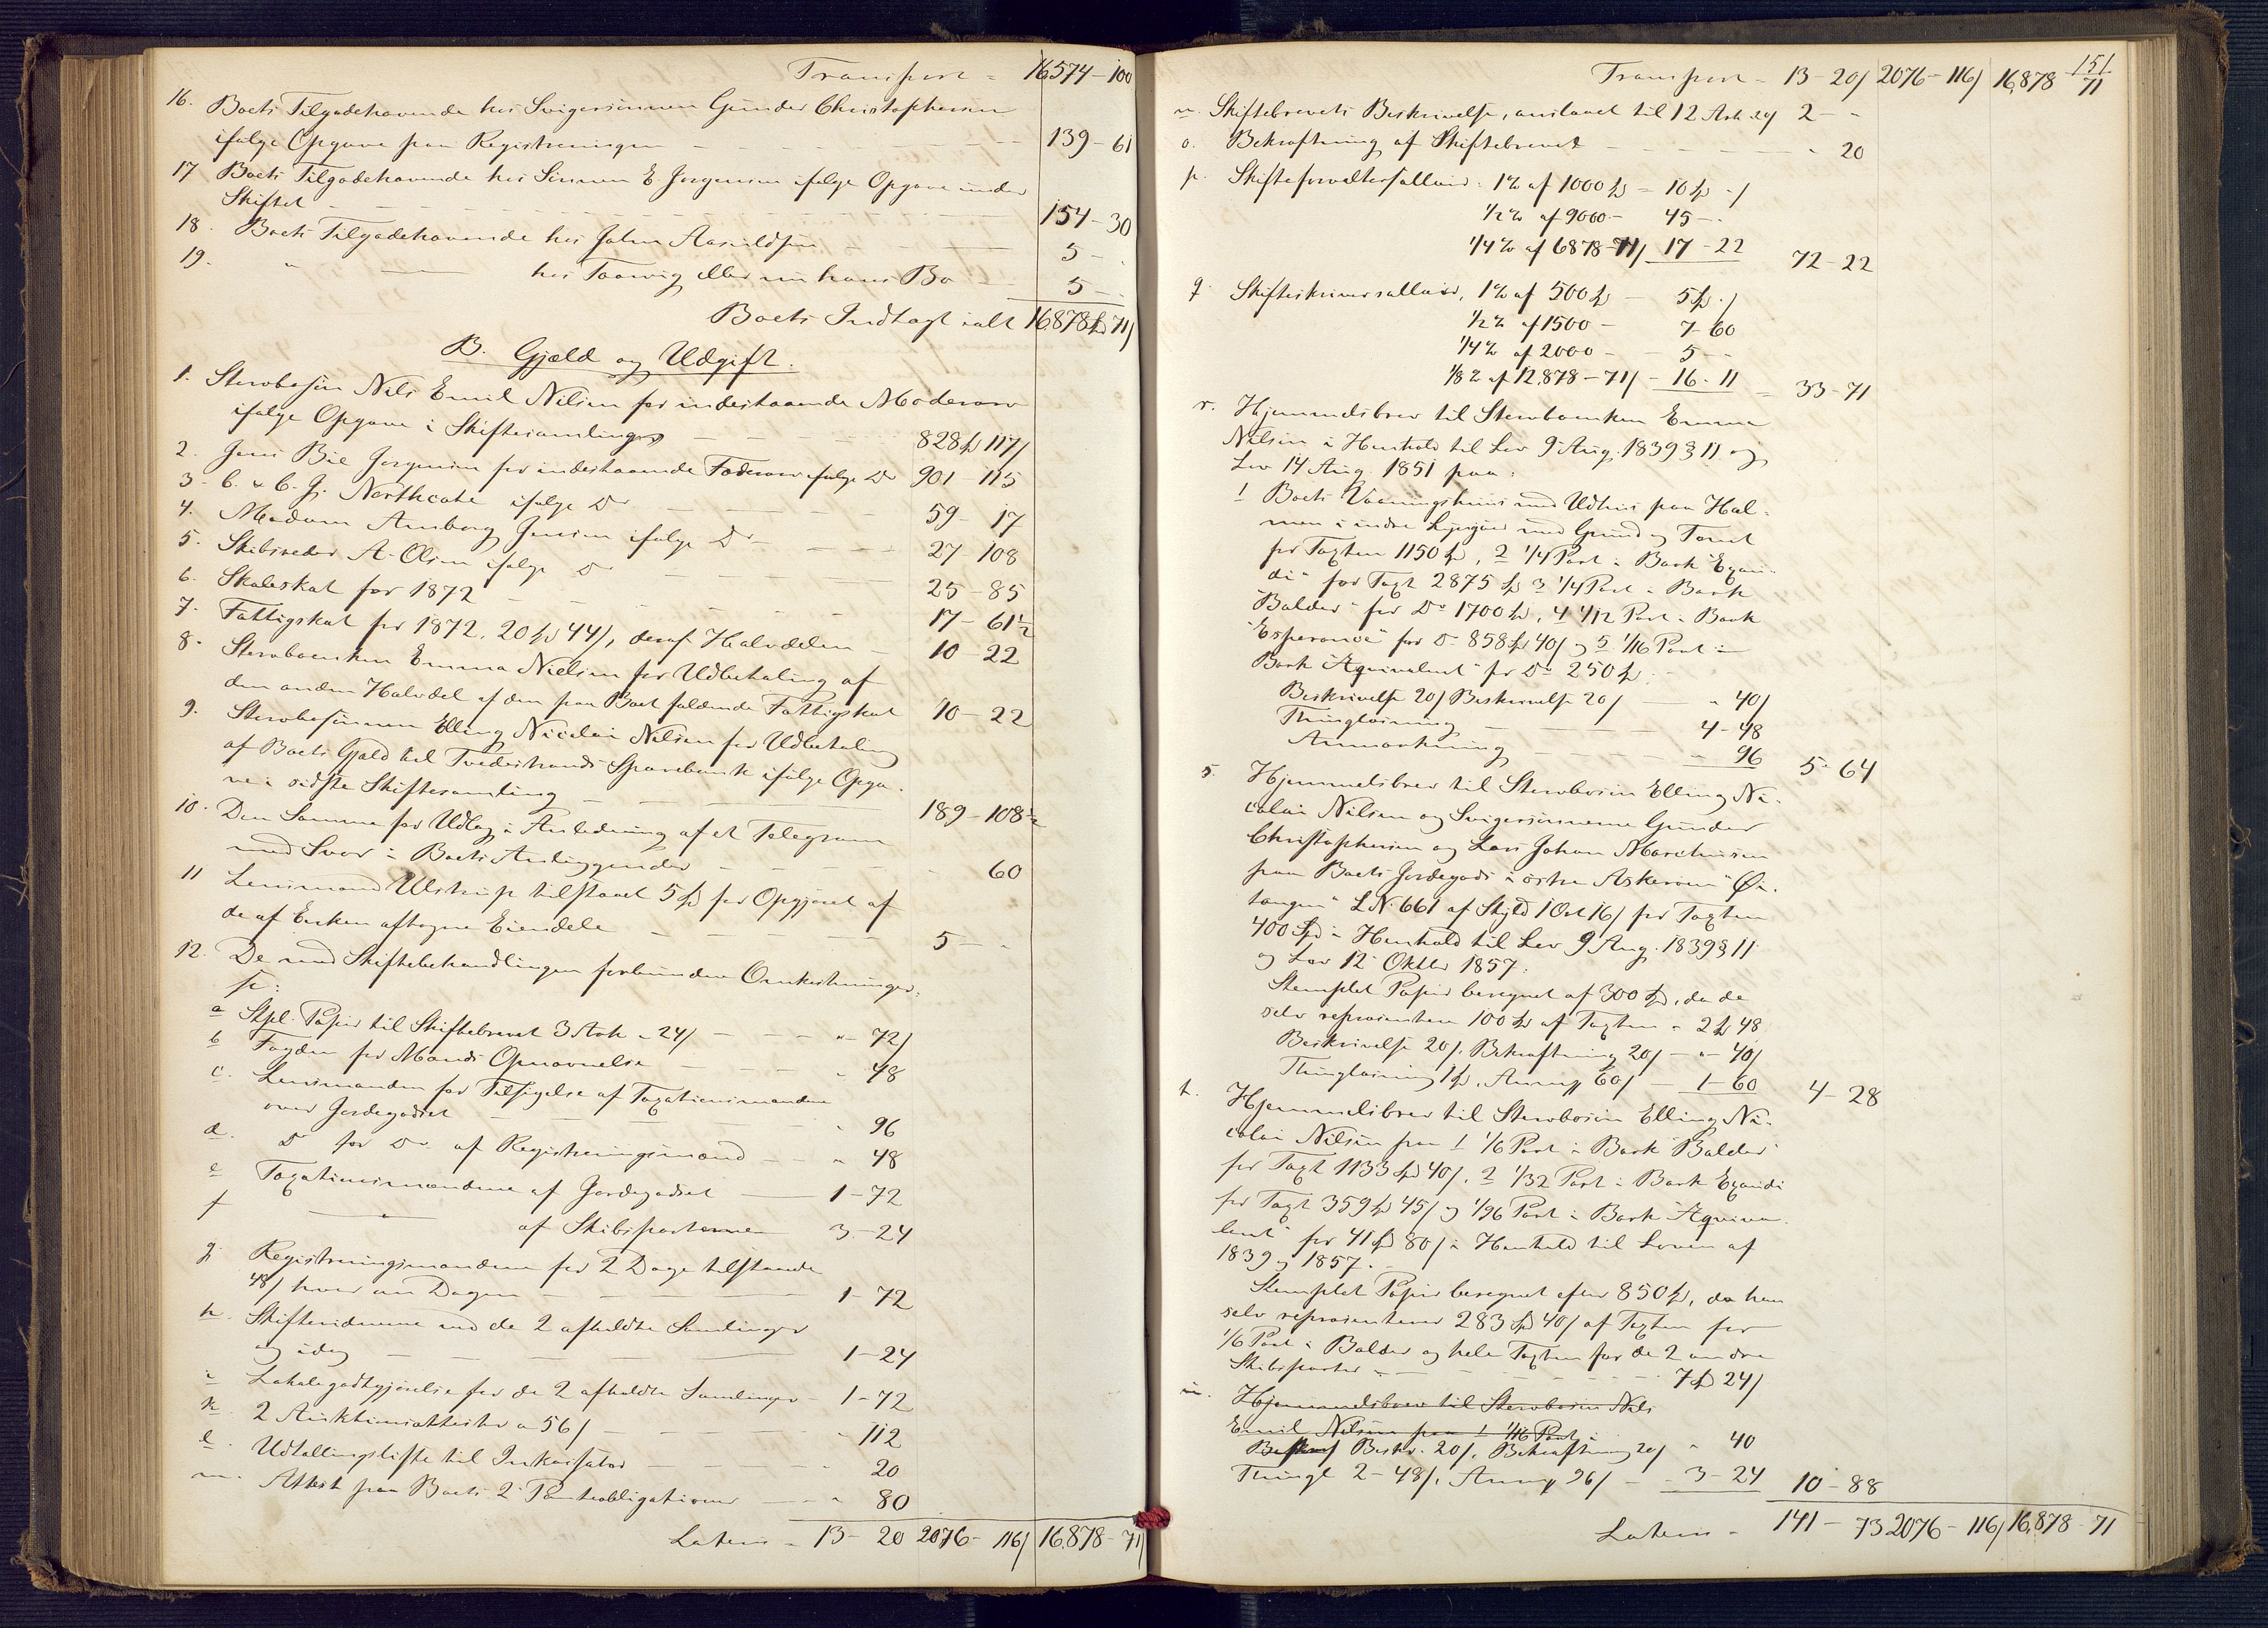 Transport = 16574 - 100
16. Boets Tilgodehavende hos Svigersønnen Gunder Christophersen
ifølge Opgave paa Registreringen - - - 139 - 61
17 Boets Tilgodehavende hos Sønnen E Jørgensen ifølge Opgave under
Skiftet - - - 154 - 30
18. Boets Tilgodehavende hos John Aasuldsen - - 5 - "
19. " — hos Taarvig eller nu hans Bo - - 5 - "
Boets Indtægt ialt 16,878 Spd 71/
B. Gjæld og Udgift.
1. Stervbosøn Nils Emil Nilsen for indestaaende Mødrearv
ifølge Opgave i Skiftesamlingen - - - 828 Spd 117/
2. Jens Bie Jørgensen for indestaaende Fædrearv ifølge Do 901 - 115
3. C. & C. G. Northcote ifølge Do - - - 59 - 17
4. Madam Amborg Jensen ifølge Do - - - 27 - 108
5. Skibsreder A. Olsen ifølge Do - - - 25 - 85
6. Skoleskat for 1872 - - - 17 - 61½
7. Fattigskat for 1872, 20 Spd 44/, deraf Halvdelen - 10 - 22
8. Stervboenken Emma Nielsen for Udbetaling af
den anden Halvdel af den paa Boet faldende Fattigskat 10 - 22
9. Stervbosønnen Elling Nicolai Nilsen for Udbetaling
af Boets Gjæld til Tvedestrands Sparebank ifølge Opga-
ve i sidste Skiftesamling - - - 189 - 108½
10. Den Samme for Udlæg i Anledning af et Telegram
med Svar i Boets Anliggender - - - 60
11 Lensmand Ulstrup tilstaaet 5 Spd for Opgjøret af
de af Enken aftagne Eiendele - - - 5 - "
12. De med Skiftebehandlingen forbundne Omkostninger,
se:
a Stpl. Papir til Skiftebrevet 3 Ark a 24/ - - " - 72/
b Fogden for Mænds Opnævnelse - - " 48
c. Lensmanden for Tilsigelse af Taxationsmændene
over Jordegodset - - - " 96
d. Do for Do af Registreringsmænd - - " 48
e Taxationsmændene af Jordegodset — 1 - 72
f — " — af Skibsparterne 3 - 24
g. Registreringsmændene for 2 Dage tilstaaede
48/ hver om Dagen - - - 1 - 72
h. Skiftevidnerne ved de 2 afholdte Samlinger
og idag - - - 1 - 24
i Lokalegodtgjørelse for de 2 afholdte Samlinger - 1 - 72
k. 2 Auktionsattester a 56/ - - - " 112
l. Udtallingsliste til Inkassator - - - " 20
m. Attest paa Boets 2 Pantobligationer - - " 80
Lateris = 13 - 20 2076 - 116/ 16,878 - 71/
151
Transport = 13 - 20/ 2076 - 116/ 16,878 71
n. Skiftebrevets Beskrivelse, anslaaet til 12 Ark 20/ 2 - "
o. Bekræftning af Skiftebrevet - - - " 20
p. Skifteforvaltersallair: 1% af 1000 Spd = 10 Spd "/
½% af 9000 - 45 - "
¼% af 6878 - 71/ 17 - 22 72 - 22
q. Skifteskriversallair, 1% af 500 Spd - 5 Spd "/
½% af 1500 - 7 - 60
¼% af 2000 - - 5 - "
⅛% af 12,878 - 71/ - 16 - 11 = 33 - 71
r. Hjemmelsbrev til Stervboenken Emma
Nilsen i Henhold til Lov 9 Aug. 1839 § 11 og
Lov 14 Aug. 1851 paa:
1 Boets Vaaningshuus med Udhus paa Hol-
men i indre Lyngør med Grund og Tomt
for Taxten 1150 Spd, 2 ¼ Part i Bark "Exan-
di" for Taxt 2875 Spd 3 ¼ Part i Bark
"Balder" for Do 1700 Spd, 4 1/12 Part i Bark
"Esperance" for Do 858 Spd 40/ og 5 1/16 Part i
Bark "Æqvivalent" for Do 250 Spd:
Beskrivelse 20/ Beskrivelse 20/ " 40/
Thinglæsning - - - 4 - 48
Anmærkning - - - " 96 5 - 64
s. Hjemmelsbrev til Stervbosøn Elling Ni-
colai Nilsen og Svigersønnerne Gunder
Christophersen og Lars Johan Marcussen
paa Boets Jordegods i østre Askerøen "Øi-
tangen" L.No. 661 af Skyld 1 Ort 16/ for Taxten
400 Spd i Henhold til Lov 9 Aug. 1839 § 11
og Lov 12 Oktbr 1857:
Stemplet Papir beregnet af 300 Spd, da de
selv repræsentere 100 Spd af Taxten = 2 Spd 48
Beskrivelse 20/. Bekræftning 20/ - " - 40/
Thinglæsning 1 Spd. Anm. 60/ - 1 - 60 4 - 28
t. Hjemmelsbrev til Stervbosøn Elling Ni-
colai Nilsen paa 1 1/6 Part i Bark "Balder"
for Taxt 1133 Spd 40/. 2 1/32 Part i Bark Exandi
for Taxt 359 Spd 45/ og 1/96 Part i Bark "Æqviva-
lent" for 41 Spd 80/ i Henhold til Loven af
1839 og 1857.
Stemplet Papir beregnet efter 850 Spd, da han
selv repræsenterer 283 Spd 40/ af Taxten for
1/6 Part i Balder og hele Taxten for de 2 andre
Skibsparter = - - - 7 Spd 24/
u. Hjemmelsbrev til Stervbosøn Nils
Emil Nilsen paa 1 1/16 Part i
Beskr. 20/. Bekræftning 20/ " 40
Thingl 2 - 48/, Anm. 96/ - - 3 - 24 10 - 88
Lateris = 141 - 73 2076 - 116/ 16,878 - 71